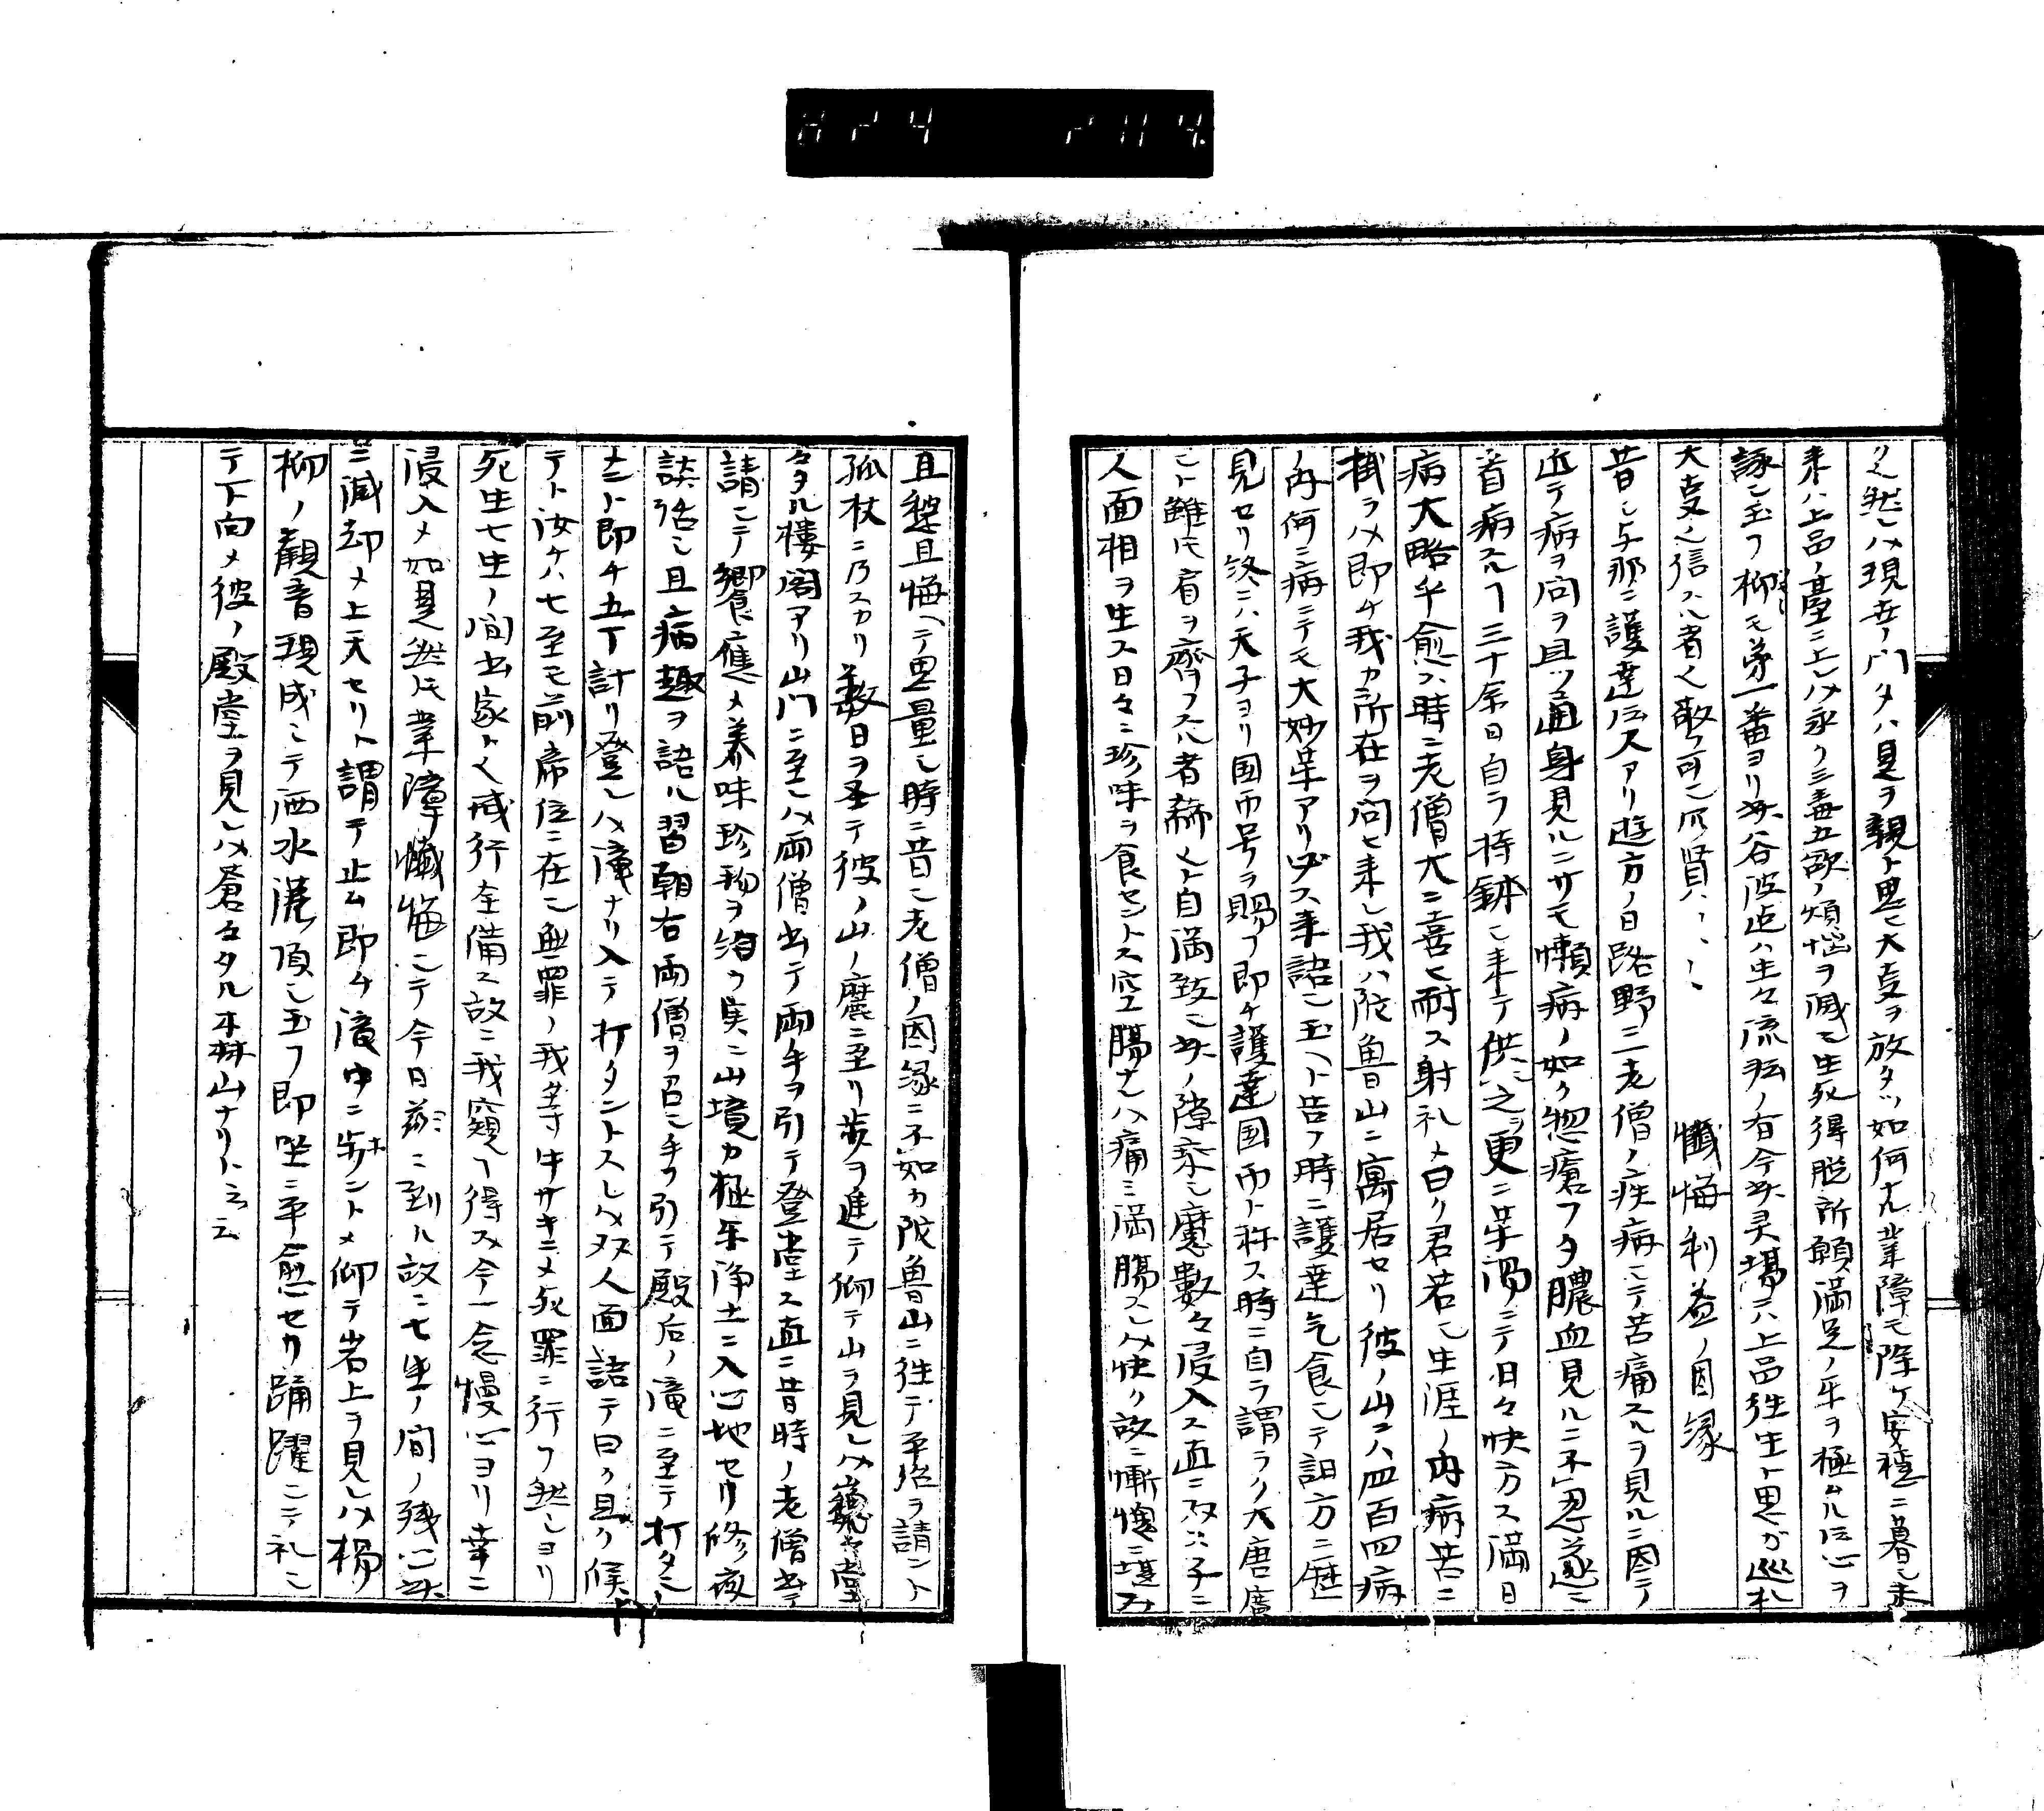 ク也然レハ現世ノ門タハ是ヲ親ト思ヒ大支ヲ放タツ如何ナル業障モ除ケ安穏ニ暮シ未
来ハ上品ノ臺ニ上レハ永ク三毒五欲ノ煩悩ヲ滅モ生死得脱所願満足ノ楽ヲ極ムル伝心ヲ
詠シ玉フ抑モ第一番ヨリ此谷汲迄ハ生々流転ノ有今此灵場ニハ上品往生ト思ガ巡礼
大支也信スル者也敬フ可シ
懺悔利益ノ因縁
昔シ与那ニ護達伝ス アリ遊方ノ日路野ニ老僧ノ疾病ニテ苦痛スルヲ見ルニ因テ
近テ病ヲ問ヲ且ツ通身見ルニサモ懶病ノ如ク惣瘡フタ膿血見ルニ不忍遂ニ
看病スルコト三十余日自ラ持鉢シ来テ供之更ニ楽 ニテ日々快方ス満日
病大略平愈ス時ニ老僧大ニ喜ヒ耐ス射礼メ曰ク君若シ生涯ノ内病苦ニ
掛ラハ即チ我カ所在ヲ問ヒ来レ我ハ陀魯山ニ寓居セリ彼ノ山ニハ四百四病
ノ内何ニ病ニテモ大妙薬アリ必ス来詣シ玉ヘト告ク時ニ護達乞食シテ諸方ニ歴
見セリ終ニハ天子ヨリ国師号ラ賜フ即チ護達国師ト称ス時ニ自ラ謂ラク大唐廣
シト雖モ肩ヲ齊フスル者稀也ト自満致シ此ノ隙乗シ魔数々浸入ス直ニ双 子ニ
人面相ヲ生ス日々ニ珍味ヲ食セントス空腸ナレハ痛ミ満腸スレハ快ク故ニ慚愧ニ堪ス
且愁且悔ヘテ思量シ時ニ昔シ老僧ノ因縁ニ不如カ陀魯山ニ往テ平治ヲ請ント
孤杖ニ乃スカリ数日ヲ至テ彼ノ山ノ麓ニ至リ歩ヲ進テ仰テ山ヲ見レハ巍々堂
々タル樓閣アリ山門ニ至レハ両僧出テ両手ヲ引テ登堂ス直ニ昔時ノ老僧出テ
請シテ饗應メ養味珍物ヲ給ウ実ニ山境カ極楽浄土ニ入心地セリ修夜
談話シ且病趣ヲ語ル習朝右両僧ヲ召シ手ヲ引テ殿后ノ滝ニ至テ打タシ
ナント即チ五丁計リ登レハ滝ナリ入テ打タントスレハ双人面語テ曰ク且ク候
テト汝ケハ七至モ前帝位ニ在シ無罪ノ我等サキニメ死罪ニ行フ然シヨリ
死生七生ノ間出家ト也戒行全備ス故ニ我窺コト得ス今一念慢心ヨリ幸ニ
浸入メ如是然モ業障懺悔シテ今日茲ニ到ル故ニ七生ノ間ノ残心此
ニ滅却メ上天セリト謂テ止ム即チ滝中ニ歩ントメ仰テ岩上ヲ見レハ楊
柳ノ観音現成シテ洒水灌頂シ玉フ即坐ニ平愈セリ踊躍シテ礼シ
テ下向メ彼ノ殿堂ヲ見レハ蒼々タル木森山ナリト云云